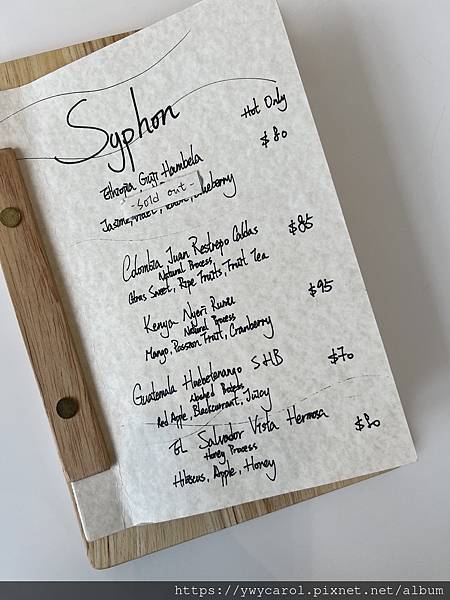 Syphon
Hot Only
Ethiopia Guji Hambela $80
-sold out-
Blueberry
Colombia Juan Restrepo Caldas $85
Natural Process
Citrus Sweet, Ripe Fruits, Fruit Tea
Kenya Nyeri Ruiru $95
Natural Process
Mango, Passion Fruit, Cranberry
Guatemala Huehetenango SHB $70
Washed Process
Red Apple, Blackcurrant, Juicy
EL Salvador Vista Hermosa $80
Honey Process
Hibiscus, Apple, Honey
https://ywycarol.pixnet.net/album